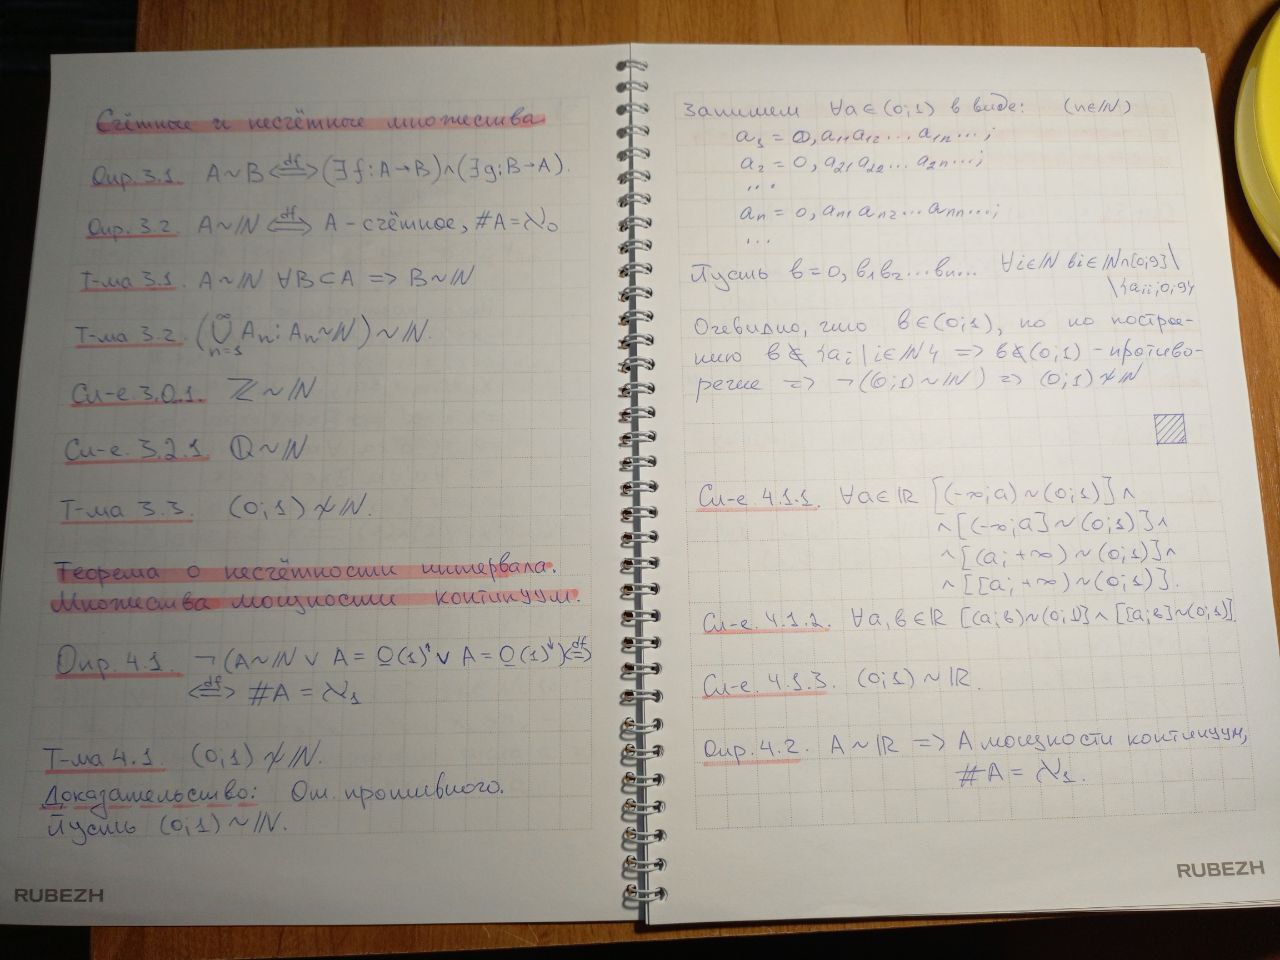 Счётные и несчётные множества
Опр. 3.1. A~B <=df=> (∃f:A→B)∧(∃g:B→A).
Опр. 3.2. A~ℕ <=df=> A - счётное, #A=λ₀
Т-ма 3.1. A~ℕ ∀B⊂A => B~ℕ
Т-ма 3.2. (⋃ₙ₌₁^∞ Aₙ: Aₙ~ℕ)~ℕ.
Сл-е. 3.0.1. ℤ~ℕ
Сл-е. 3.2.1 ℚ~ℕ
Т-ма 3.3. (0;1)≁ℕ.
Теорема о несчётности интервала.
Множества мощности континуум.
Опр. 4.1. ¬(A~ℕ ∨ A= O(1)↑ ∨ A= O(1)↓) <=df=>
<=df=> #A = λ₁
Т-ма 4.1. (0;1) ≁ℕ.
Доказательство: От противного.
Пусть (0;1)~ℕ.
RUBEZH
Запишем ∀a∈(0;1) в виде: (n∈ℕ)
a₁ = 0,a₁₁a₁₂...a₁ₙ...;
a₂ = 0,a₂₁a₂₂...a₂ₙ...;
...
aₙ = 0,aₙ₁aₙ₂...aₙₙ...;
...
Пусть b=0,b₁b₂...bₙ... ∀i∈ℕ bi∈ℕ∩[0;9]\
\{aᵢᵢ;0;9}
Очевидно, что b∈(0;1), но по построе-
нию b∉{aᵢ|i∈ℕ} => b∉(0;1) - противо-
речие => ¬((0;1)~ℕ) => (0;1)≁ℕ
Сл-е 4.1.1. ∀a∈ℝ [(-∞;a)~(0;1)]∧
∧[(-∞;a]~(0;1)]∧
∧[(a;+∞)~(0;1)]∧
∧[[a;+∞)~(0;1)].
Сл-е. 4.1.2. ∀a,b∈ℝ [(a;b)~(0;1)]∧[[a;b]~(0;1)].
Сл-е. 4.1.3. (0;1)~ℝ.
Опр. 4.2. A~ℝ => A мощности континуум,
#A = λ₁.
RUBEZH